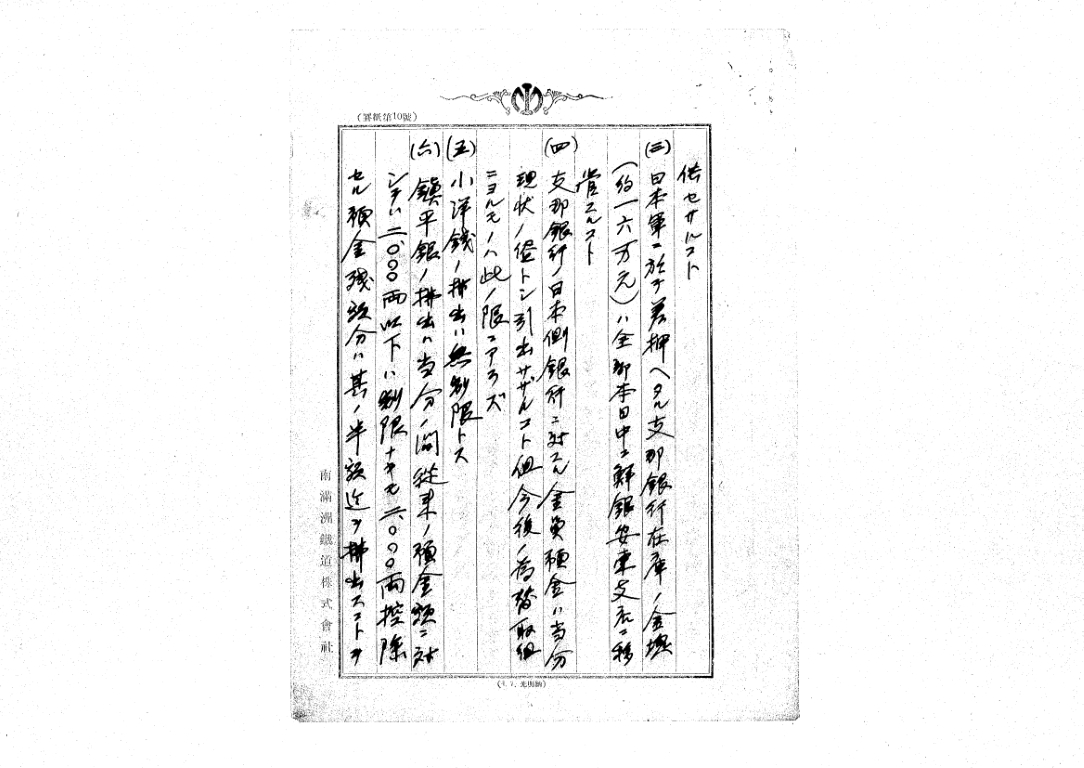 (罫紙第10號)
供セサルコト
(三) 日本軍ニ於テ差押ヘタル支那銀行在庫ノ金塊
(約一六万元)ハ全部本日中ニ鮮銀安東支店ニ移
管スルコト
(四) 支那銀行ノ日本側銀行ニ対スル金員預金ハ当分
現状ノ儘トシ引出サザルコト但今後ノ為替取組
ニヨルモノハ此ノ限ニアラズ
(五) 小洋銭ノ拂出ハ無制限トス
(六) 鎮平銀ノ拂出ハ当分ノ間従来ノ預金額ニ対
シテハ二、〇〇〇両以下ハ制限ナキモ二、〇〇〇両控除
セル預金残額分ハ其ノ半額迄ヲ拂出スコトヲ
南滿洲鐵道株式會社